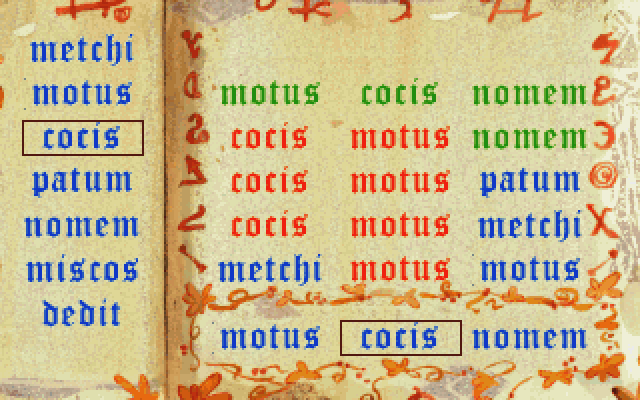 metchi
motus
cocis
patum
nomem
miscos
dedit
motus cocis nomem
cocis motus nomem
cocis motus patum
cocis motus metchi
metchi motus motus
motus cocis nomem